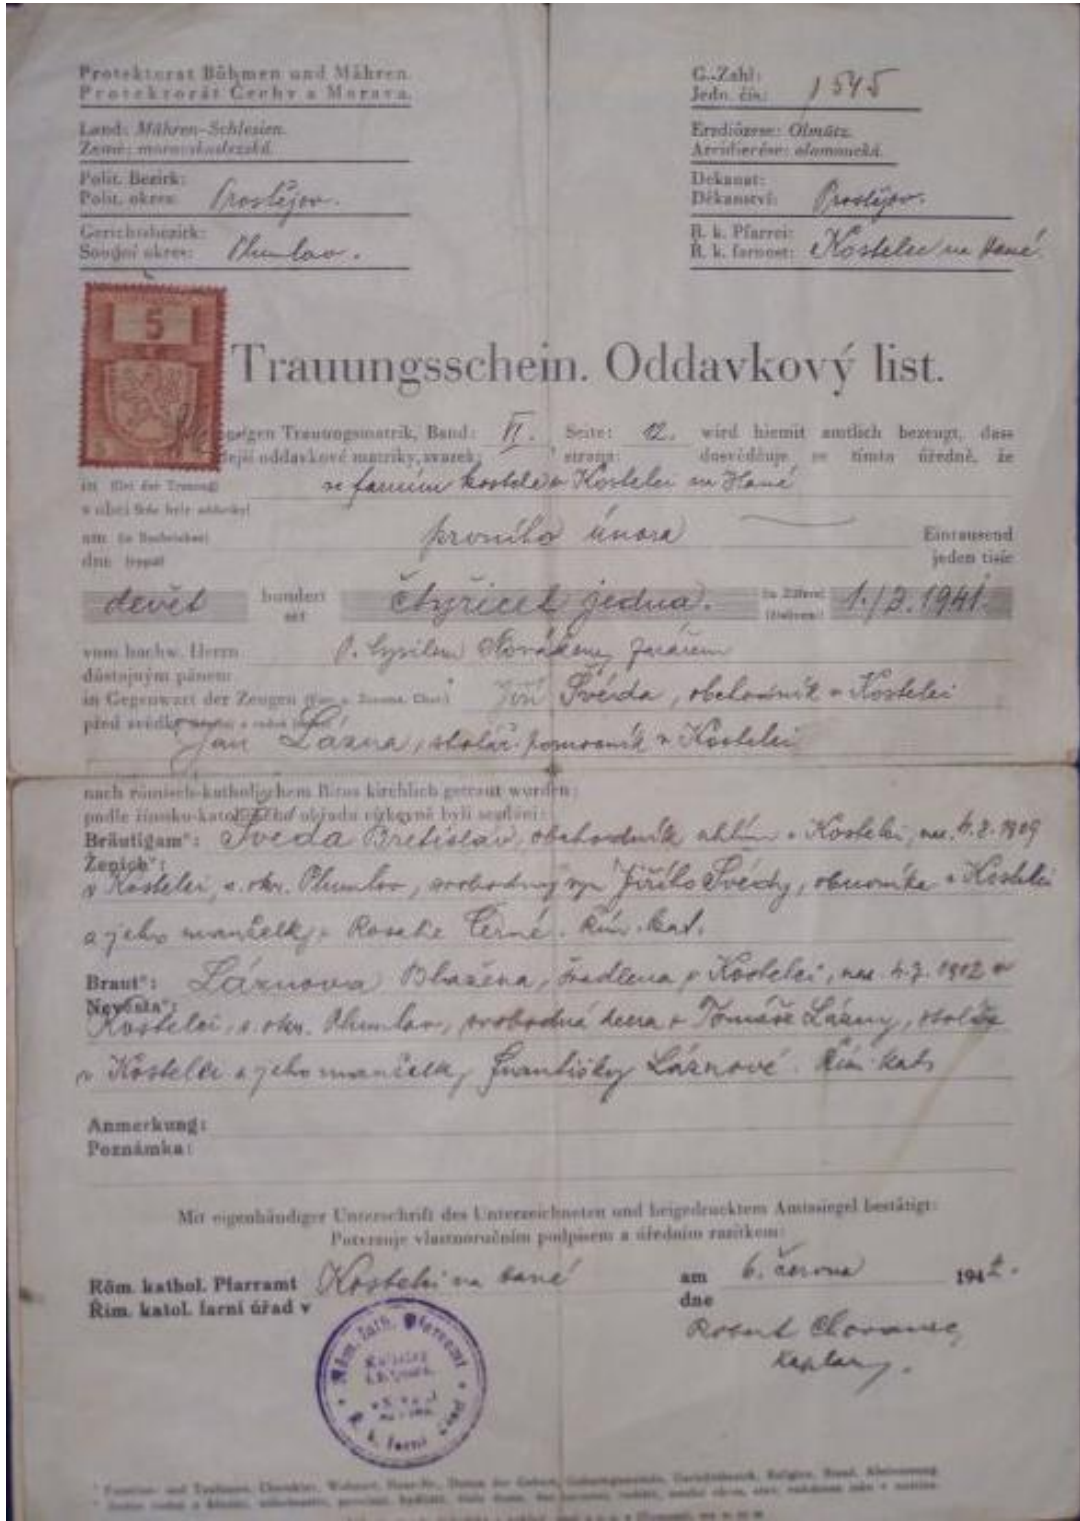 Protektorat Böhmen und Mähren.
Protektorát Čechy a Morava.
Land: Mähren-Schlesien.
Země: moravskoslezská.
Polit. Bezirk:
Polit. okres: Prostějov.
Gerichtsbezirk:
Soudní okres: Plumlov.
G.-Zahl:
Jedn. čís.: 1545
Erzdiözese: Olmütz.
Arcidiecése: olomoucká.
Dekanat:
Děkanství: Prostějov.
R. k. Pfarrei:
Ř. k. farnost: Kostelec na Hané
5
Trauungsschein. Oddavkový list.
Trauungsmatrik, Band: VI. Seite: 12. wird hiemit amtlich bezeugt, dass
oddavkové matriky, svazek: strana: dosvědčuje se tímto úředně, že
ve farním kostele v Kostelci na Hané
am (in Buchstaben) prvního února Eintausend
dne jeden tisíc
devět hundert čtyřicet jedna. (in Ziffern) 1./2. 1941.
set
vom hochw. Herrn P. Cyrilem Novákem, farářem
důstojným pánem
in Gegenwart der Zeugen Jiří Švéda, obchodník v Kostelci
před svědky
Jan Lázna, stolař. pomocník v Kostelci
nach römisch-katholischem Ritus kirchlich getraut worden:
podle římsko-katolického obřadu církevně byli sezdáni:
Bräutigam*: Švéda Břetislav, obchodník uhlím v Kostelci, nar. 4. 2. 1909
Ženich*:
v Kostelci, s. okr. Plumlov, svobodný syn Jiřího Švédy, obuvníka v Kostelci
a jeho manželky Rosalie Černé. Řím. kat.
Braut*: Láznova Blažena, švadlena v Kostelci, nar. 4. 7. 1912 v
Nevěsta*:
Kostelci, s. okr. Plumlov, svobodná dcera Tomáše Lázny, stolaře
v Kostelci a jeho manželky Františky Láznové. Řím. kat.
Anmerkung:
Poznámka:
Mit eigenhändiger Unterschrift des Unterzeichneten und beigedrucktem Amtssiegel bestätigt:
Potvrzuje vlastnoručním podpisem a úředním razítkem:
Röm. kathol. Pfarramt Kostelci na Hané am 6. června 1942.
Řím. katol. farní úřad v dne
Robert Chovanec,
kaplan.
Röm. kath. Pfarramt
Ř. k. farní úřad